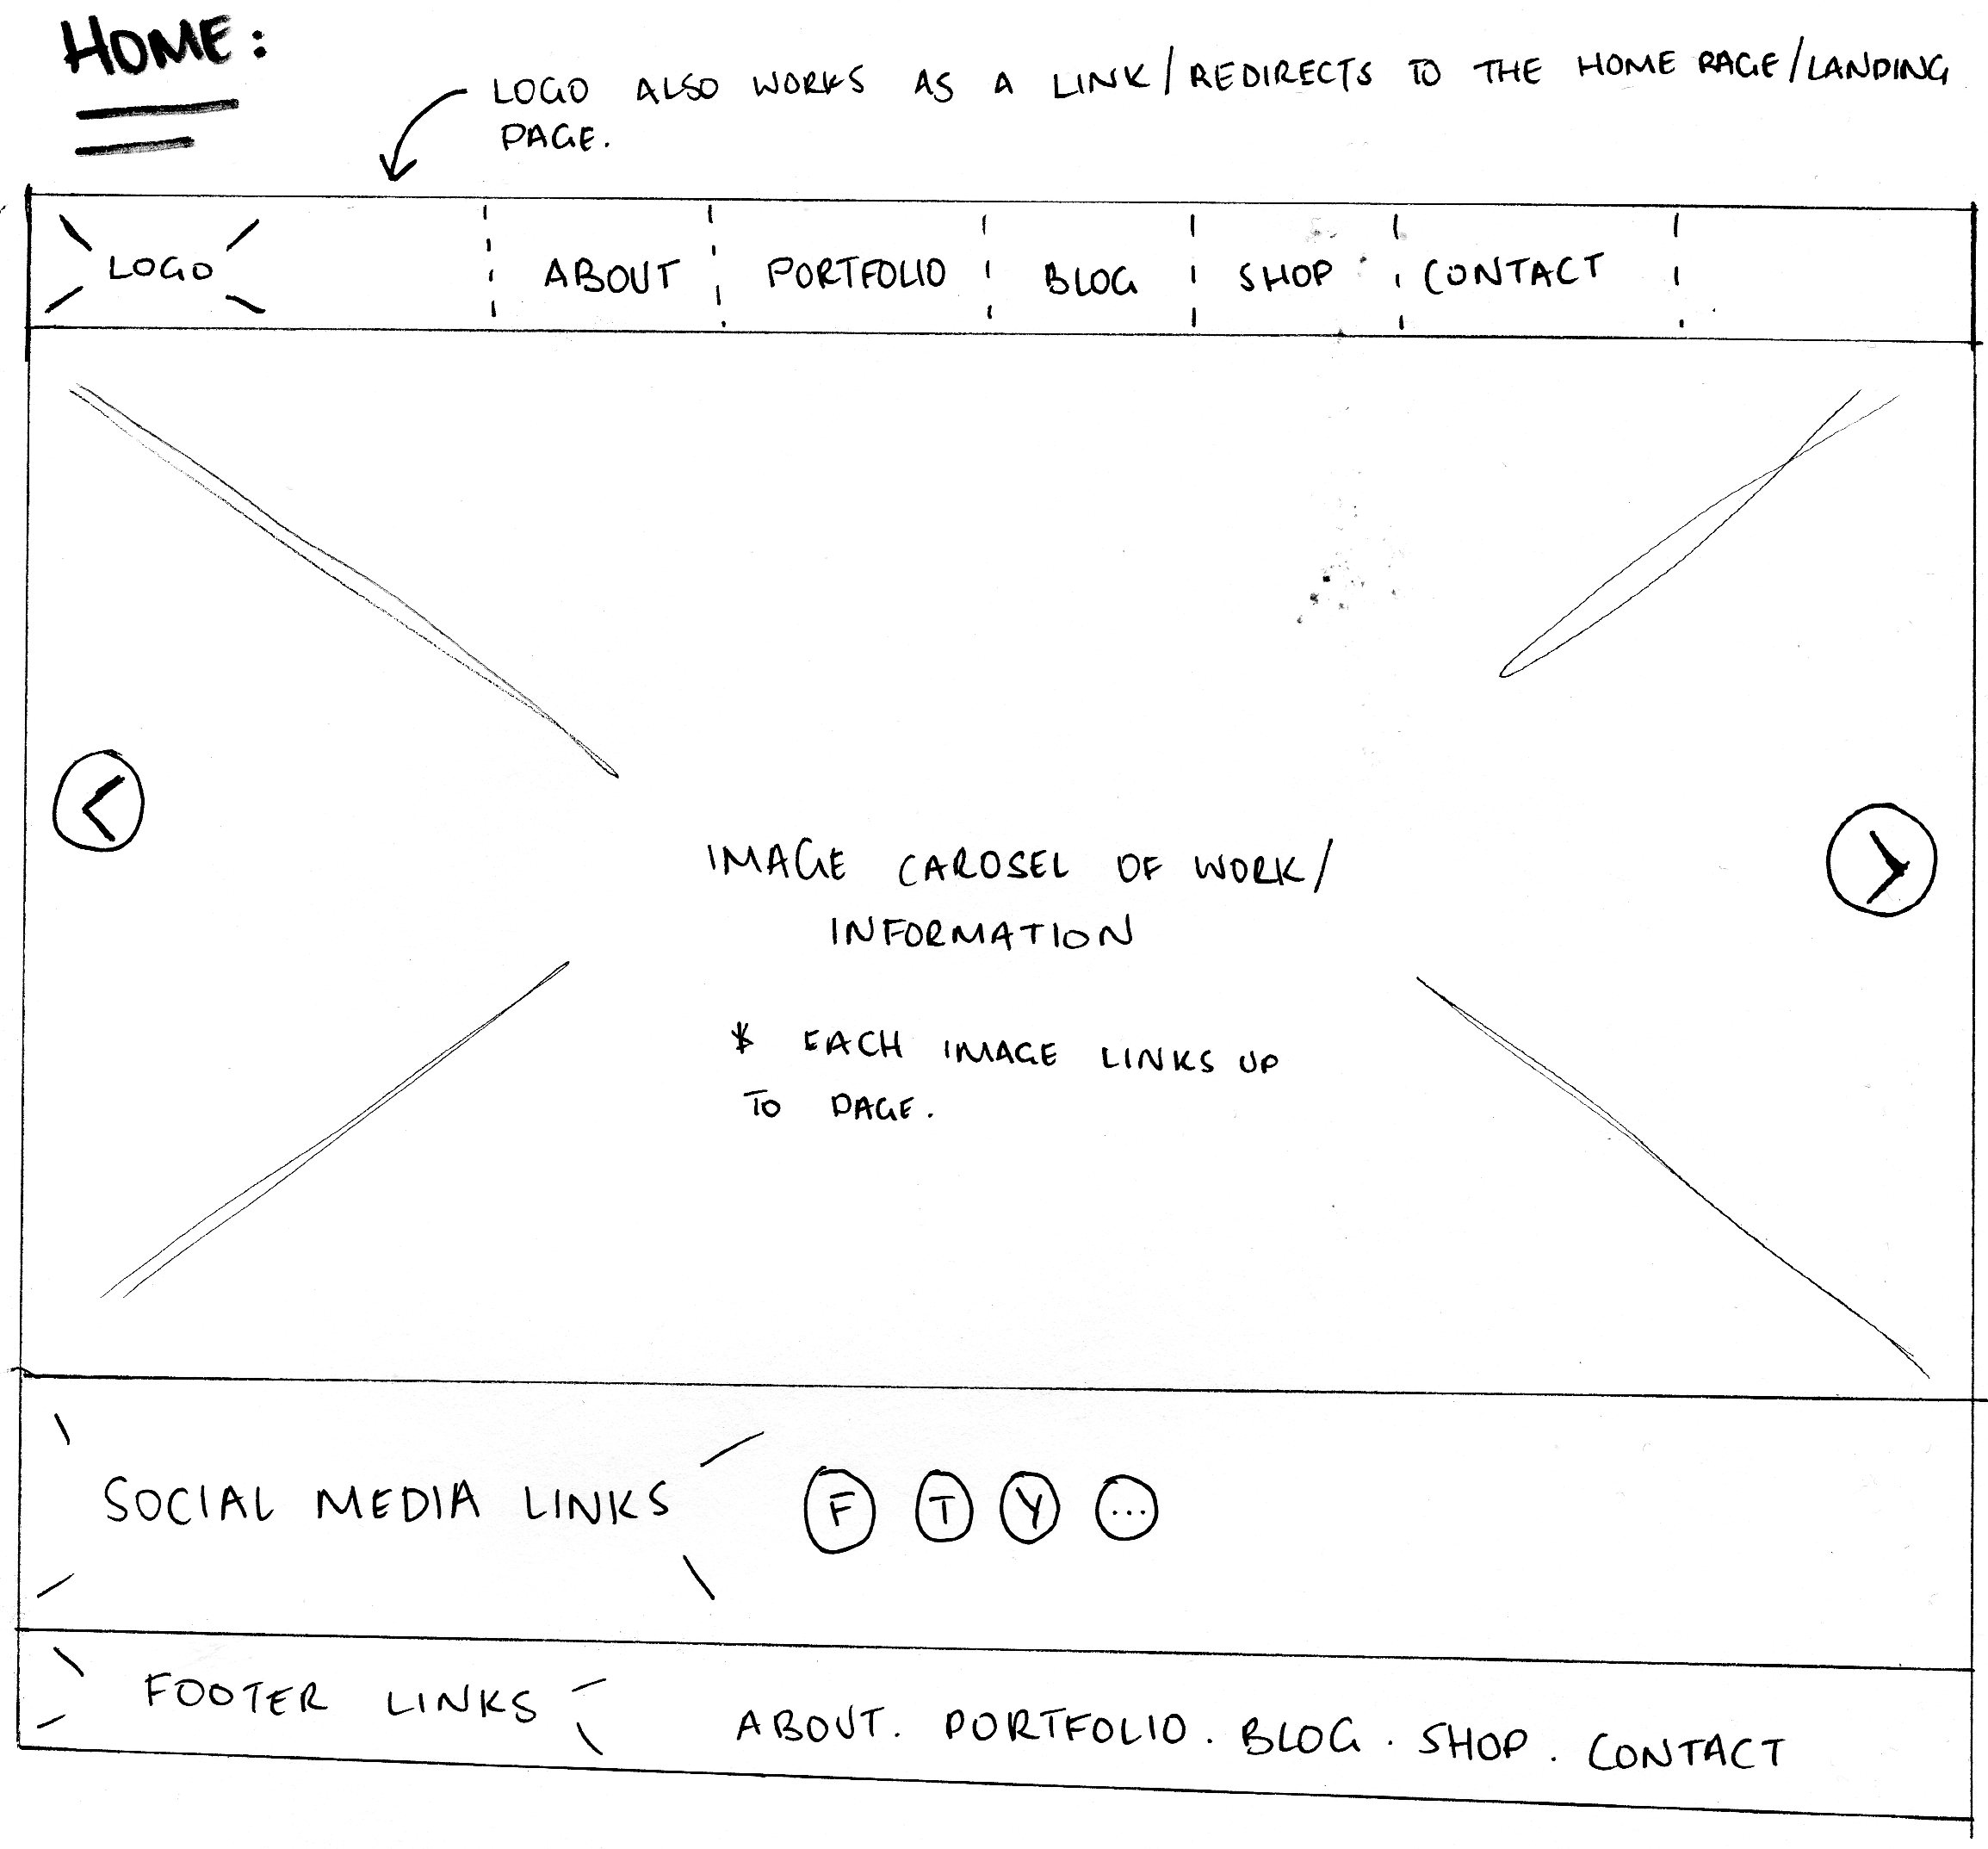 HOME:
LOGO ALSO WORKS AS A LINK/REDIRECTS TO THE HOME PAGE/LANDING
PAGE.
LOGO ABOUT PORTFOLIO BLOG SHOP CONTACT
<
>
IMAGE CAROSEL OF WORK/
INFORMATION
* EACH IMAGE LINKS UP
TO PAGE.
SOCIAL MEDIA LINKS F T Y ...
FOOTER LINKS ABOUT. PORTFOLIO. BLOG. SHOP. CONTACT